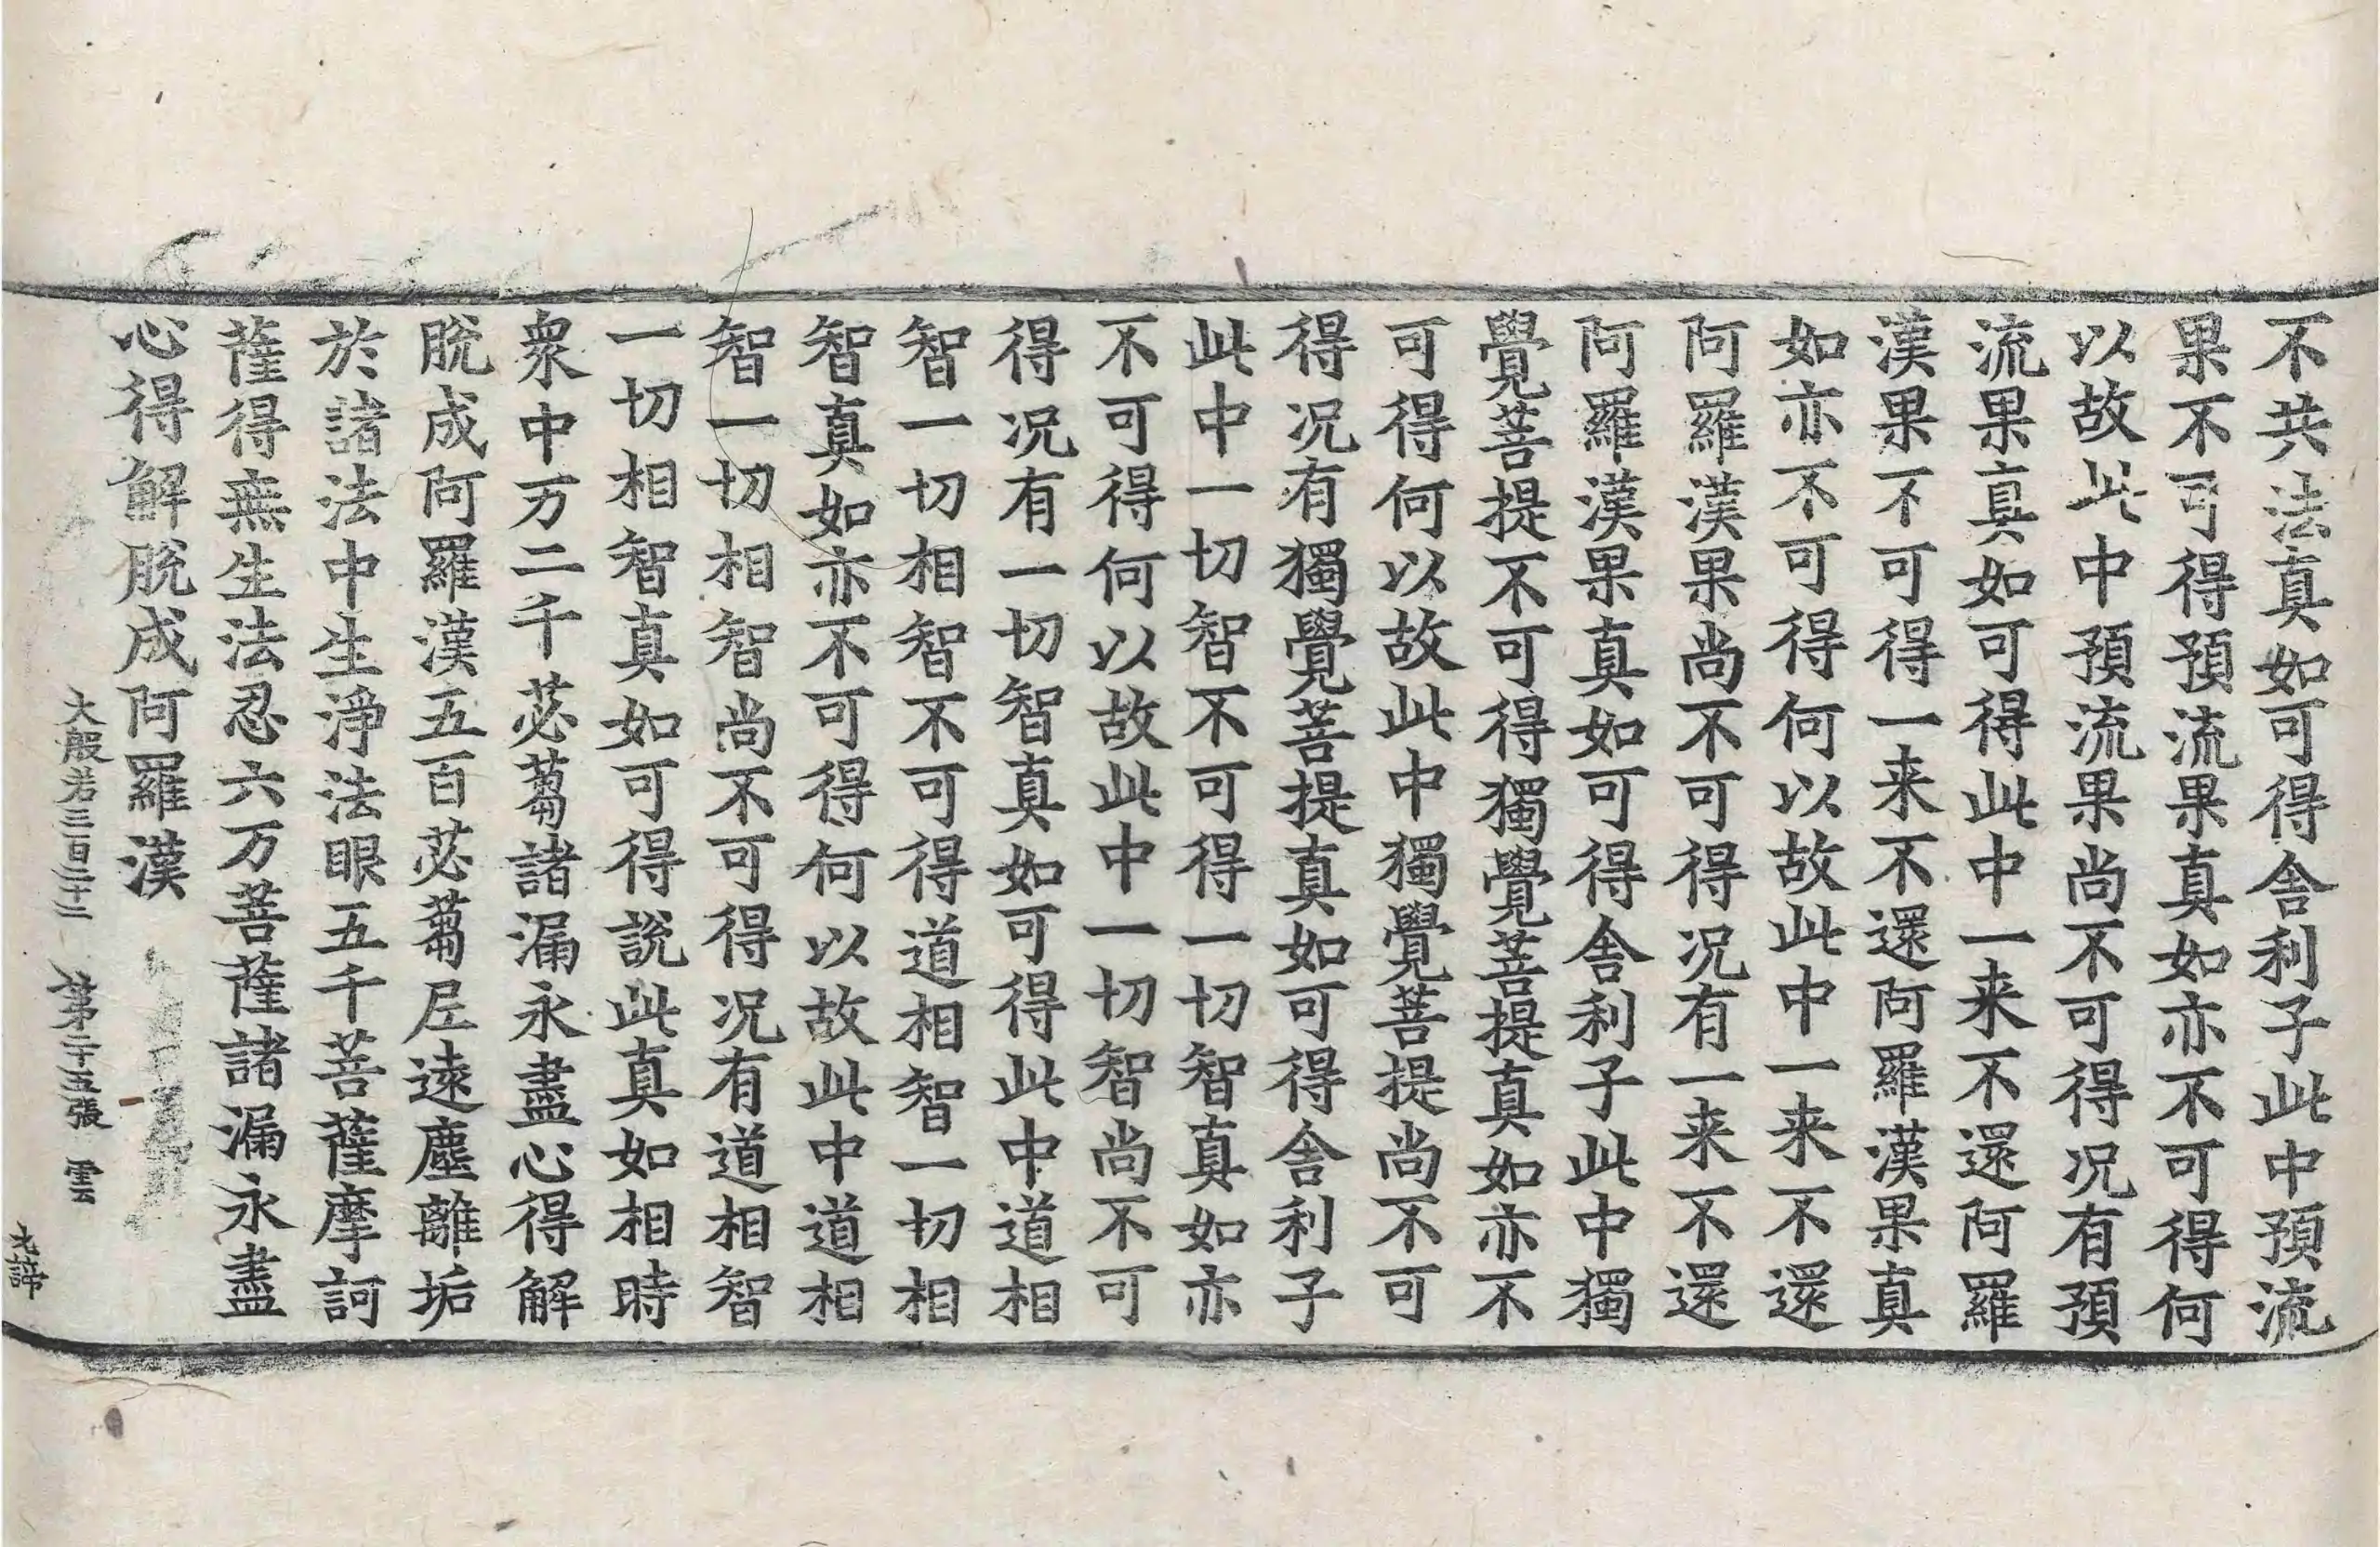 不共法真如可得舍利子此中預流
果不可得預流果真如亦不可得何
以故此中預流果尚不可得况有預
流果真如可得此中一来不還阿羅
漢果不可得一来不還阿羅漢果真
如亦不可得何以故此中一来不還
阿羅漢果尚不可得况有一来不還
阿羅漢果真如可得舍利子此中獨
覺菩提不可得獨覺菩提真如亦不
可得何以故此中獨覺菩提尚不可
得况有獨覺菩提真如可得舍利子
此中一切智不可得一切智真如亦
不可得何以故此中一切智尚不可
得况有一切智真如可得此中道相
智一切相智不可得道相智一切相
智真如亦不可得何以故此中道相
智一切相智尚不可得况有道相智
一切相智真如可得說此真如相時
衆中万二千苾蒭諸漏永盡心得解
脫成阿羅漢五百苾蒭尼遠塵離垢
於諸法中生淨法眼五千菩薩摩訶
薩得無生法忍六万菩薩諸漏永盡
心得解脫成阿羅漢
大般若三百二十三 第二十五張 雲